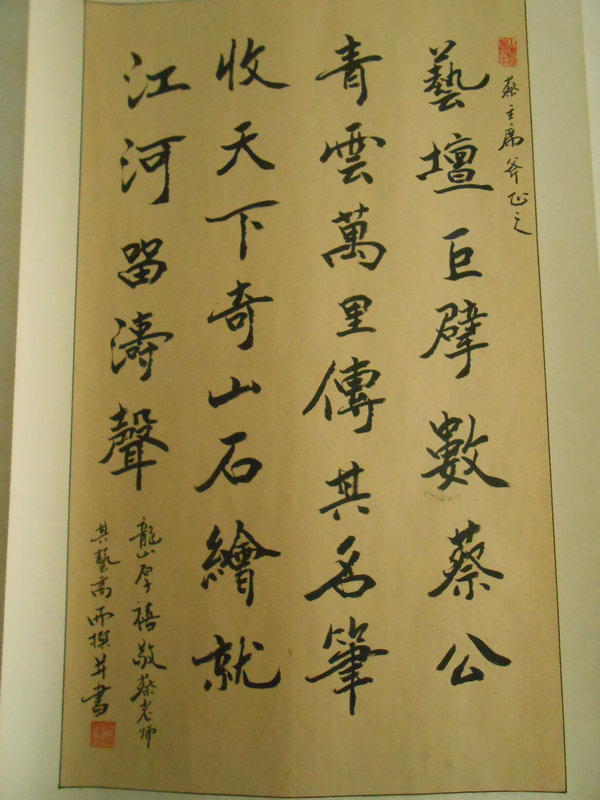 蔡主席斧正之
藝壇巨擘數蔡公
青雲萬里傳其名筆
收天下奇山石繪就
江河留濤聲
龍山厚禧敬蔡老师
其藝高而撰并書